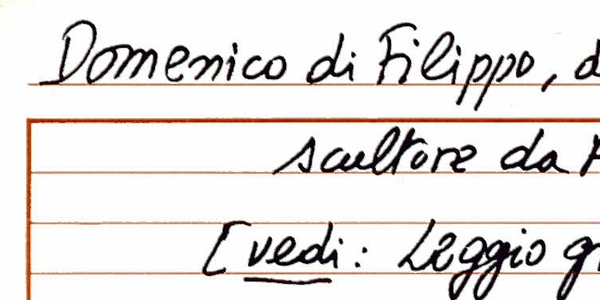 Domenico di Filippo, d
scultore da
[vedi: Leggio gr